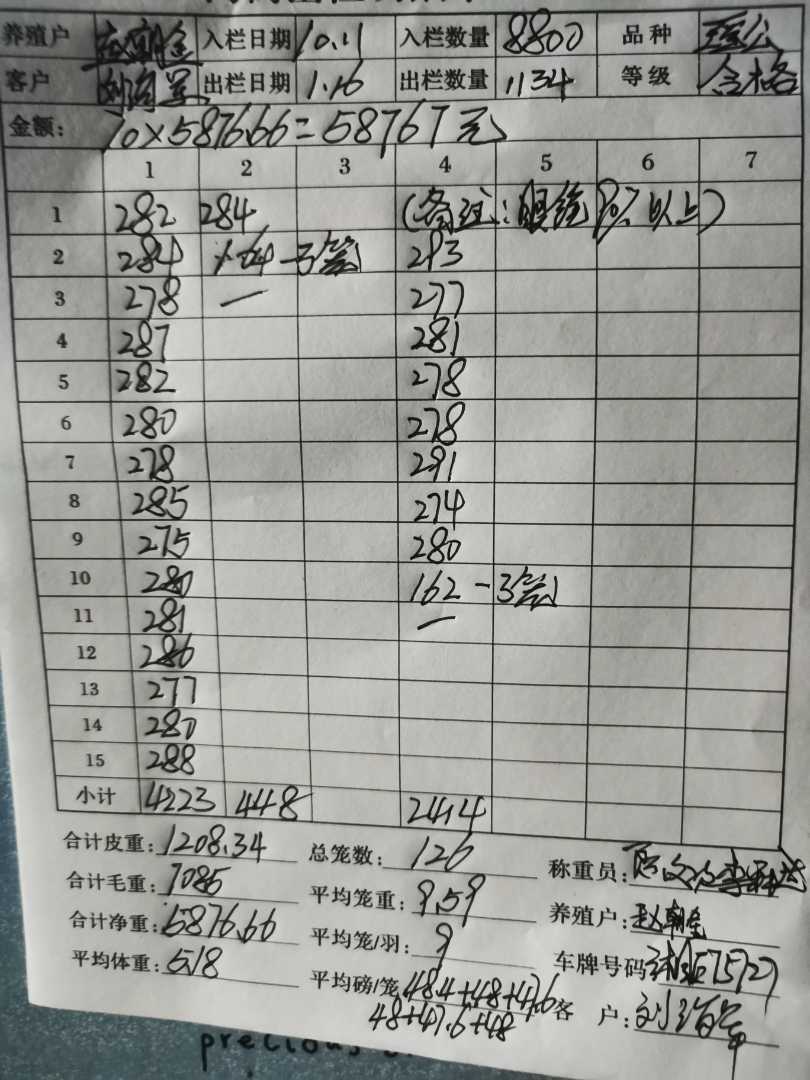 养殖户 赵朝金 入栏日期 10.11 入栏数量 8800 品种
客户 出栏日期 1.16 出栏数量 1134 等级 合格
金额: 10×5876.66=58767元
1 2 3 4 5 6 7
1 282 284 (备注: 以上)
2 284 -3笼 293
3 278 — 277
4 287 281
5 282 278
6 280 278
7 278 291
8 285 274
9 275 280
10 280 162 -3笼
11 281 —
12 286
13 277
14 280
15 288
小计 4223 448 2414
合计皮重: 1208.34 总笼数: 126 称重员:
合计毛重: 7085 平均笼重: 9.59 养殖户: 赵朝金
合计净重: 5876.66 平均笼/羽: 9 车牌号码
平均体重: 5.18 平均磅/笼 48.4+48+47.6 客 户:
48+47.6+48
precious